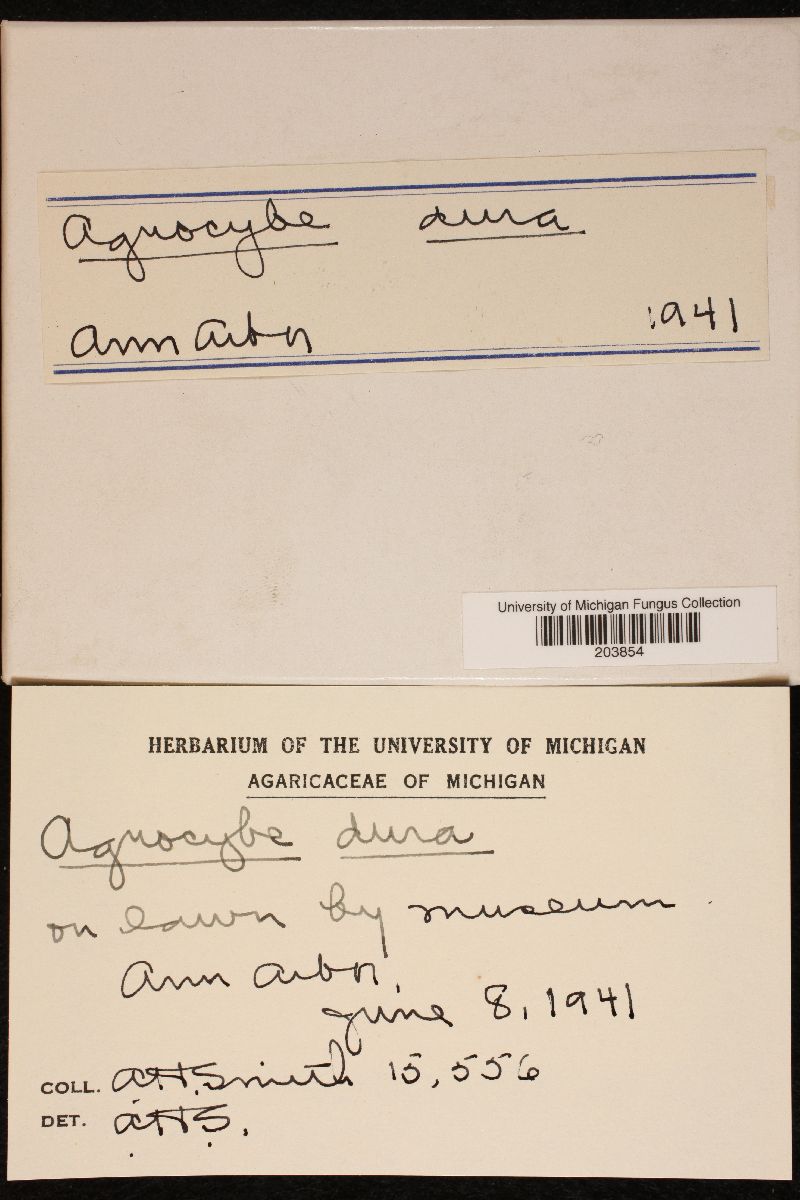 Agrocybe dura
Ann Arbor 1941
University of Michigan Fungus Collection
203854
HERBARIUM OF THE UNIVERSITY OF MICHIGAN
AGARICACEAE OF MICHIGAN
Agrocybe dura
on lawn by museum
Ann Arbor,
June 8, 1941
COLL. A.H. Smith 15,556
DET. A.H.S.